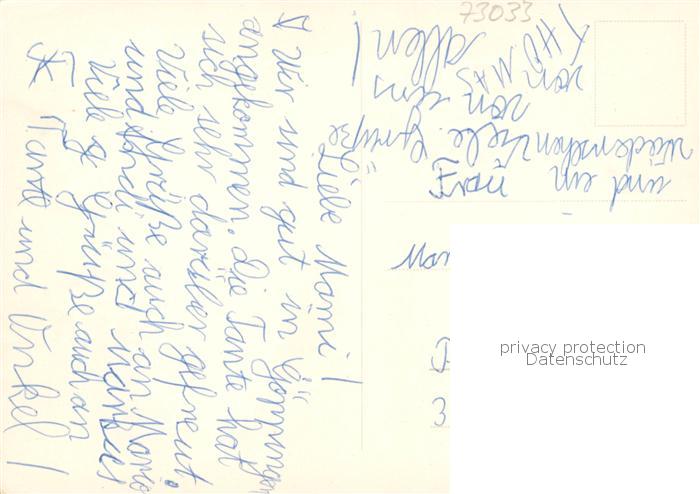 Liebe Mami!
Wir sind gut in Göppingen
angekommen. die Tante hat
sich sehr darüber gefreut.
Viele Grüße auch an Mario
und Jordi und Markus
Viele Grüße auch an
Tante und Onkel!
und ein
wiedersehen viele Grüße
von uns
allen!
von
THOMAS
Frau
Mar
3
73033
privacy protection
Datenschutz